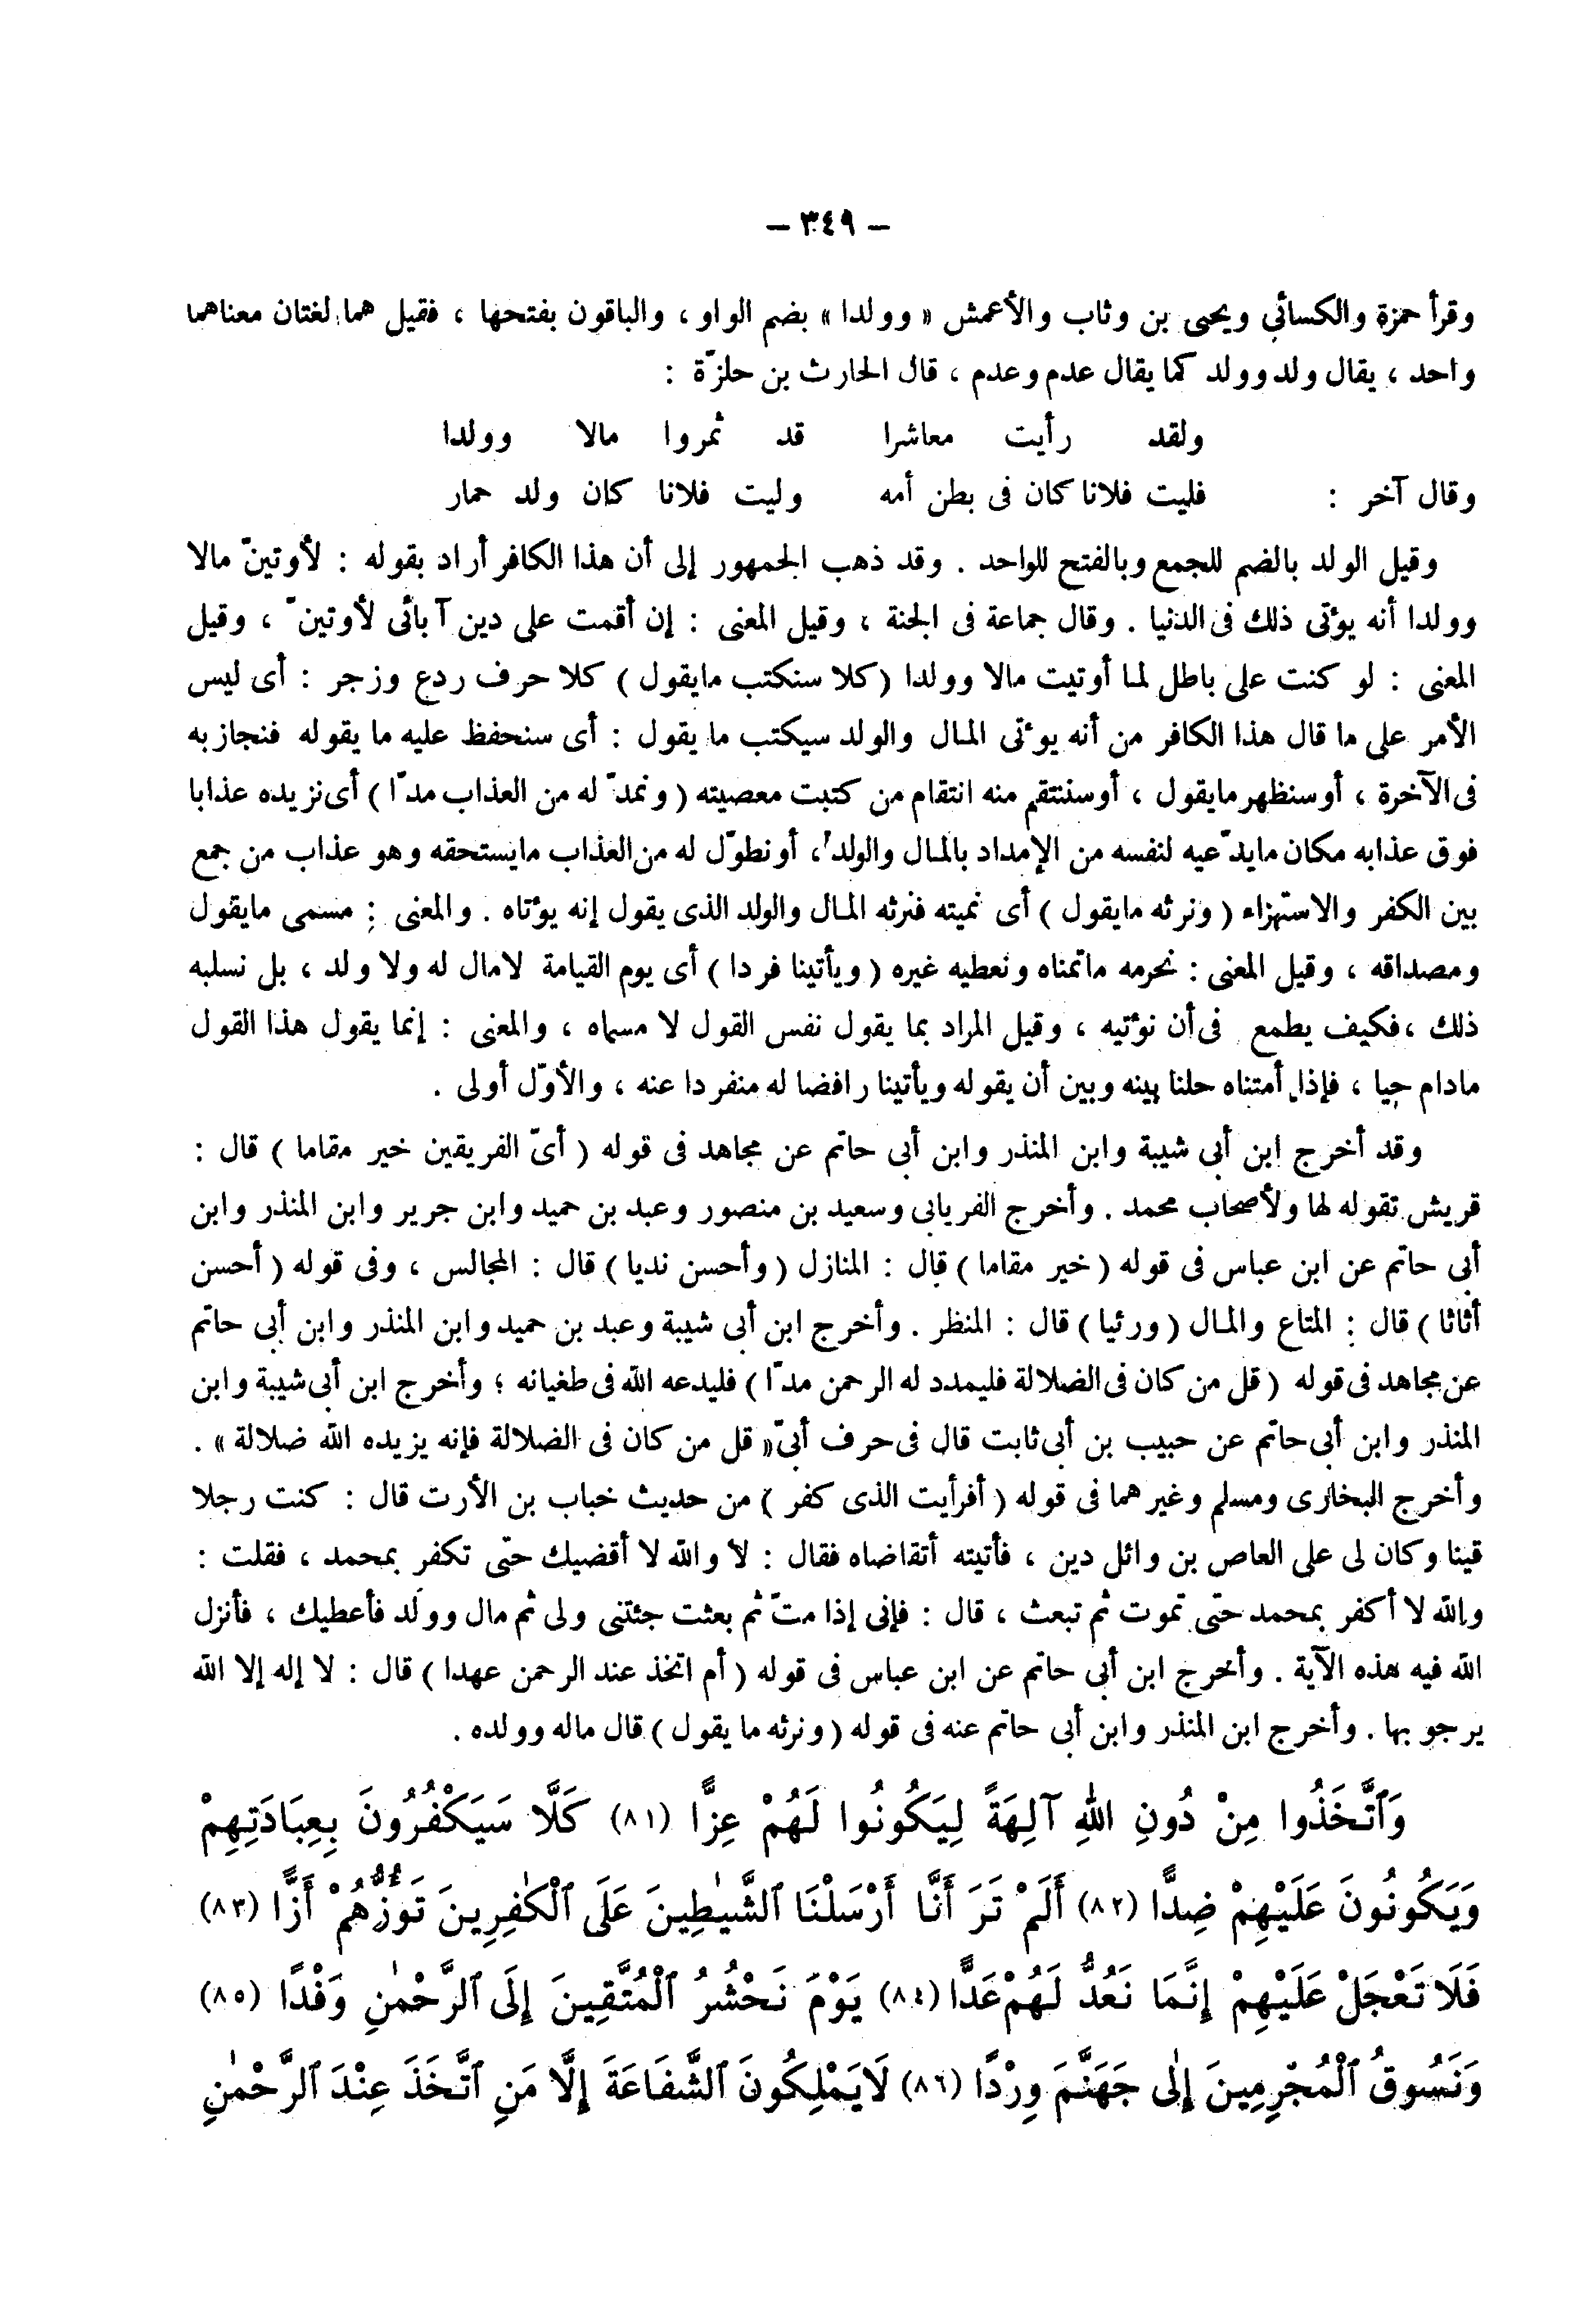 – ٣٤٩ –
وقرأ حمزة والكسائي ويحيى بن وثاب والأعمش « وولدا » بضم الواو ، والباقون بفتحها ، فقيل هما لغتان معناهما
واحد ، يقال ولد وولد كما يقال عدم وعدم ، قال الحارث بن حلزّة :
ولقد رأيت معاشرا قد ثمروا مالا وولدا
وقال آخر : فليت فلانا كان فى بطن أمه وليت فلانا كان ولد حمار
وقيل الولد بالضم للجمع وبالفتح للواحد . وقد ذهب الجمهور إلى أن هذا الكافر أراد بقوله : لأوتينّ مالا
وولدا أنه يؤتى ذلك فى الدنيا . وقال جماعة فى الجنة ، وقيل المعنى : إن أقمت على دين آبائى لأوتينّ ، وقيل
المعنى : لو كنت على باطل لما أوتيت مالا وولدا ( كلا سنكتب مايقول ) كلا حرف ردع وزجر : أى ليس
الأمر على ما قال هذا الكافر من أنه يوتى المال والولد سيكتب ما يقول : أى سنحفظ عليه ما يقوله فنجازيه
فى الآخرة ، أو سنظهر مايقول ، أو سننتقم منه انتقام من كتبت معصيته ( ونمدّ له من العذاب مدّا ) أى نزيده عذابا
فوق عذابه مكان مايدّعيه لنفسه من الإمداد بالمال والولد ، أو نطوّل له من العذاب مايستحقه وهو عذاب من جمع
بين الكفر والاستهزاء ( ونرثه مايقول ) أى نميته فنرثه المال والولد الذى يقول إنه يؤتاه . والمعنى : مسمى مايقول
ومصداقه ، وقيل المعنى : نحرمه ماتمناه ونعطيه غيره ( ويأتينا فردا ) أى يوم القيامة لامال له ولا ولد ، بل نسلبه
ذلك ، فكيف يطمع فى أن نؤتيه ، وقيل المراد بما يقول نفس القول لا مسماه ، والمعنى : إنما يقول هذا القول
مادام حيا ، فإذا أمتناه حلنا بينه وبين أن يقوله ويأتينا رافضا له منفردا عنه ، والأوّل أولى .
وقد أخرج ابن أبى شيبة وابن المنذر وابن أبى حاتم عن مجاهد فى قوله ( أىّ الفريقين خير مقاما ) قال :
قريش تقوله لها ولأصحاب محمد . وأخرج الفريابى وسعيد بن منصور وعبد بن حميد وابن جرير وابن المنذر وابن
أبى حاتم عن ابن عباس فى قوله ( خير مقاما ) قال : المنازل ( وأحسن نديا ) قال : المجالس ، وفى قوله ( أحسن
أثاثا ) قال : المتاع والمال ( ورئيا ) قال : المنظر . وأخرج ابن أبى شيبة وعبد بن حميد وابن المنذر وابن أبى حاتم
عن مجاهد فى قوله ( قل من كان فى الضلالة فليمدد له الرحمن مدّا ) فليدعه الله فى طغيانه ؛ وأخرج ابن أبى شيبة وابن
المنذر وابن أبى حاتم عن حبيب بن أبى ثابت قال فى حرف أبىّ « قل من كان فى الضلالة فإنه يزيده الله ضلالة » .
وأخرج البخارى ومسلم وغيرهما فى قوله ( أفرأيت الذى كفر ) من حديث خباب بن الأرت قال : كنت رجلا
قينا وكان لى على العاص بن وائل دين ، فأتيته أتقاضاه فقال : لا والله لا أقضيك حتى تكفر بمحمد ، فقلت :
والله لا أكفر بمحمد حتى تموت ثم تبعث ، قال : فإنى إذا متّ ثم بعثت جئتنى ولى ثم مال وولد فأعطيك ، فأنزل
الله فيه هذه الآية . وأخرج ابن أبى حاتم عن ابن عباس فى قوله ( أم اتخذ عند الرحمن عهدا ) قال : لا إله إلا الله
يرجو بها . وأخرج ابن المنذر وابن أبى حاتم عنه فى قوله ( ونرثه ما يقول ) قال ماله وولده .
وَٱتَّخَذُوا مِنْ دُونِ اللهِ آلِهَةً لِيَكُونُوا لَهُمْ عِزًّا (٨١) كَلَّا سَيَكْفُرُونَ بِعِبَادَتِهِمْ
وَيَكُونُونَ عَلَيْهِمْ ضِدًّا (٨٢) أَلَمْ تَرَ أَنَّا أَرْسَلْنَا ٱلشَّيَٰطِينَ عَلَى ٱلْكَٰفِرِينَ تَؤُزُّهُمْ أَزًّا (٨٣)
فَلَا تَعْجَلْ عَلَيْهِمْ إِنَّمَا نَعُدُّ لَهُمْ عَدًّا (٨٤) يَوْمَ نَحْشُرُ ٱلْمُتَّقِينَ إِلَى ٱلرَّحْمَٰنِ وَفْدًا (٨٥)
وَنَسُوقُ ٱلْمُجْرِمِينَ إِلَىٰ جَهَنَّمَ وِرْدًا (٨٦) لَايَمْلِكُونَ ٱلشَّفَاعَةَ إِلَّا مَنِ ٱتَّخَذَ عِنْدَ ٱلرَّحْمَٰنِ